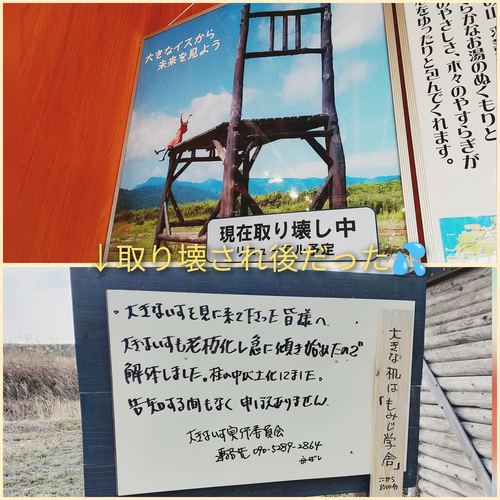 大きなイスから
未来を見よう
らかなお湯のぬくもりと
のやさしさ、木々のやすらぎが
をゆったりと包んでくれます。
現在取り壊し中
↓取り壊され後だった💦
大きないすを見に来て下さった皆様へ
大きないすも老朽化し急に傾き始めたので
解体しました。柱の中が土化してました。
告知する間もなく申し訳ありません
大きないす実行委員会
連絡先 090-5289-2864
大きな机は「もみじ学舎」
ここから